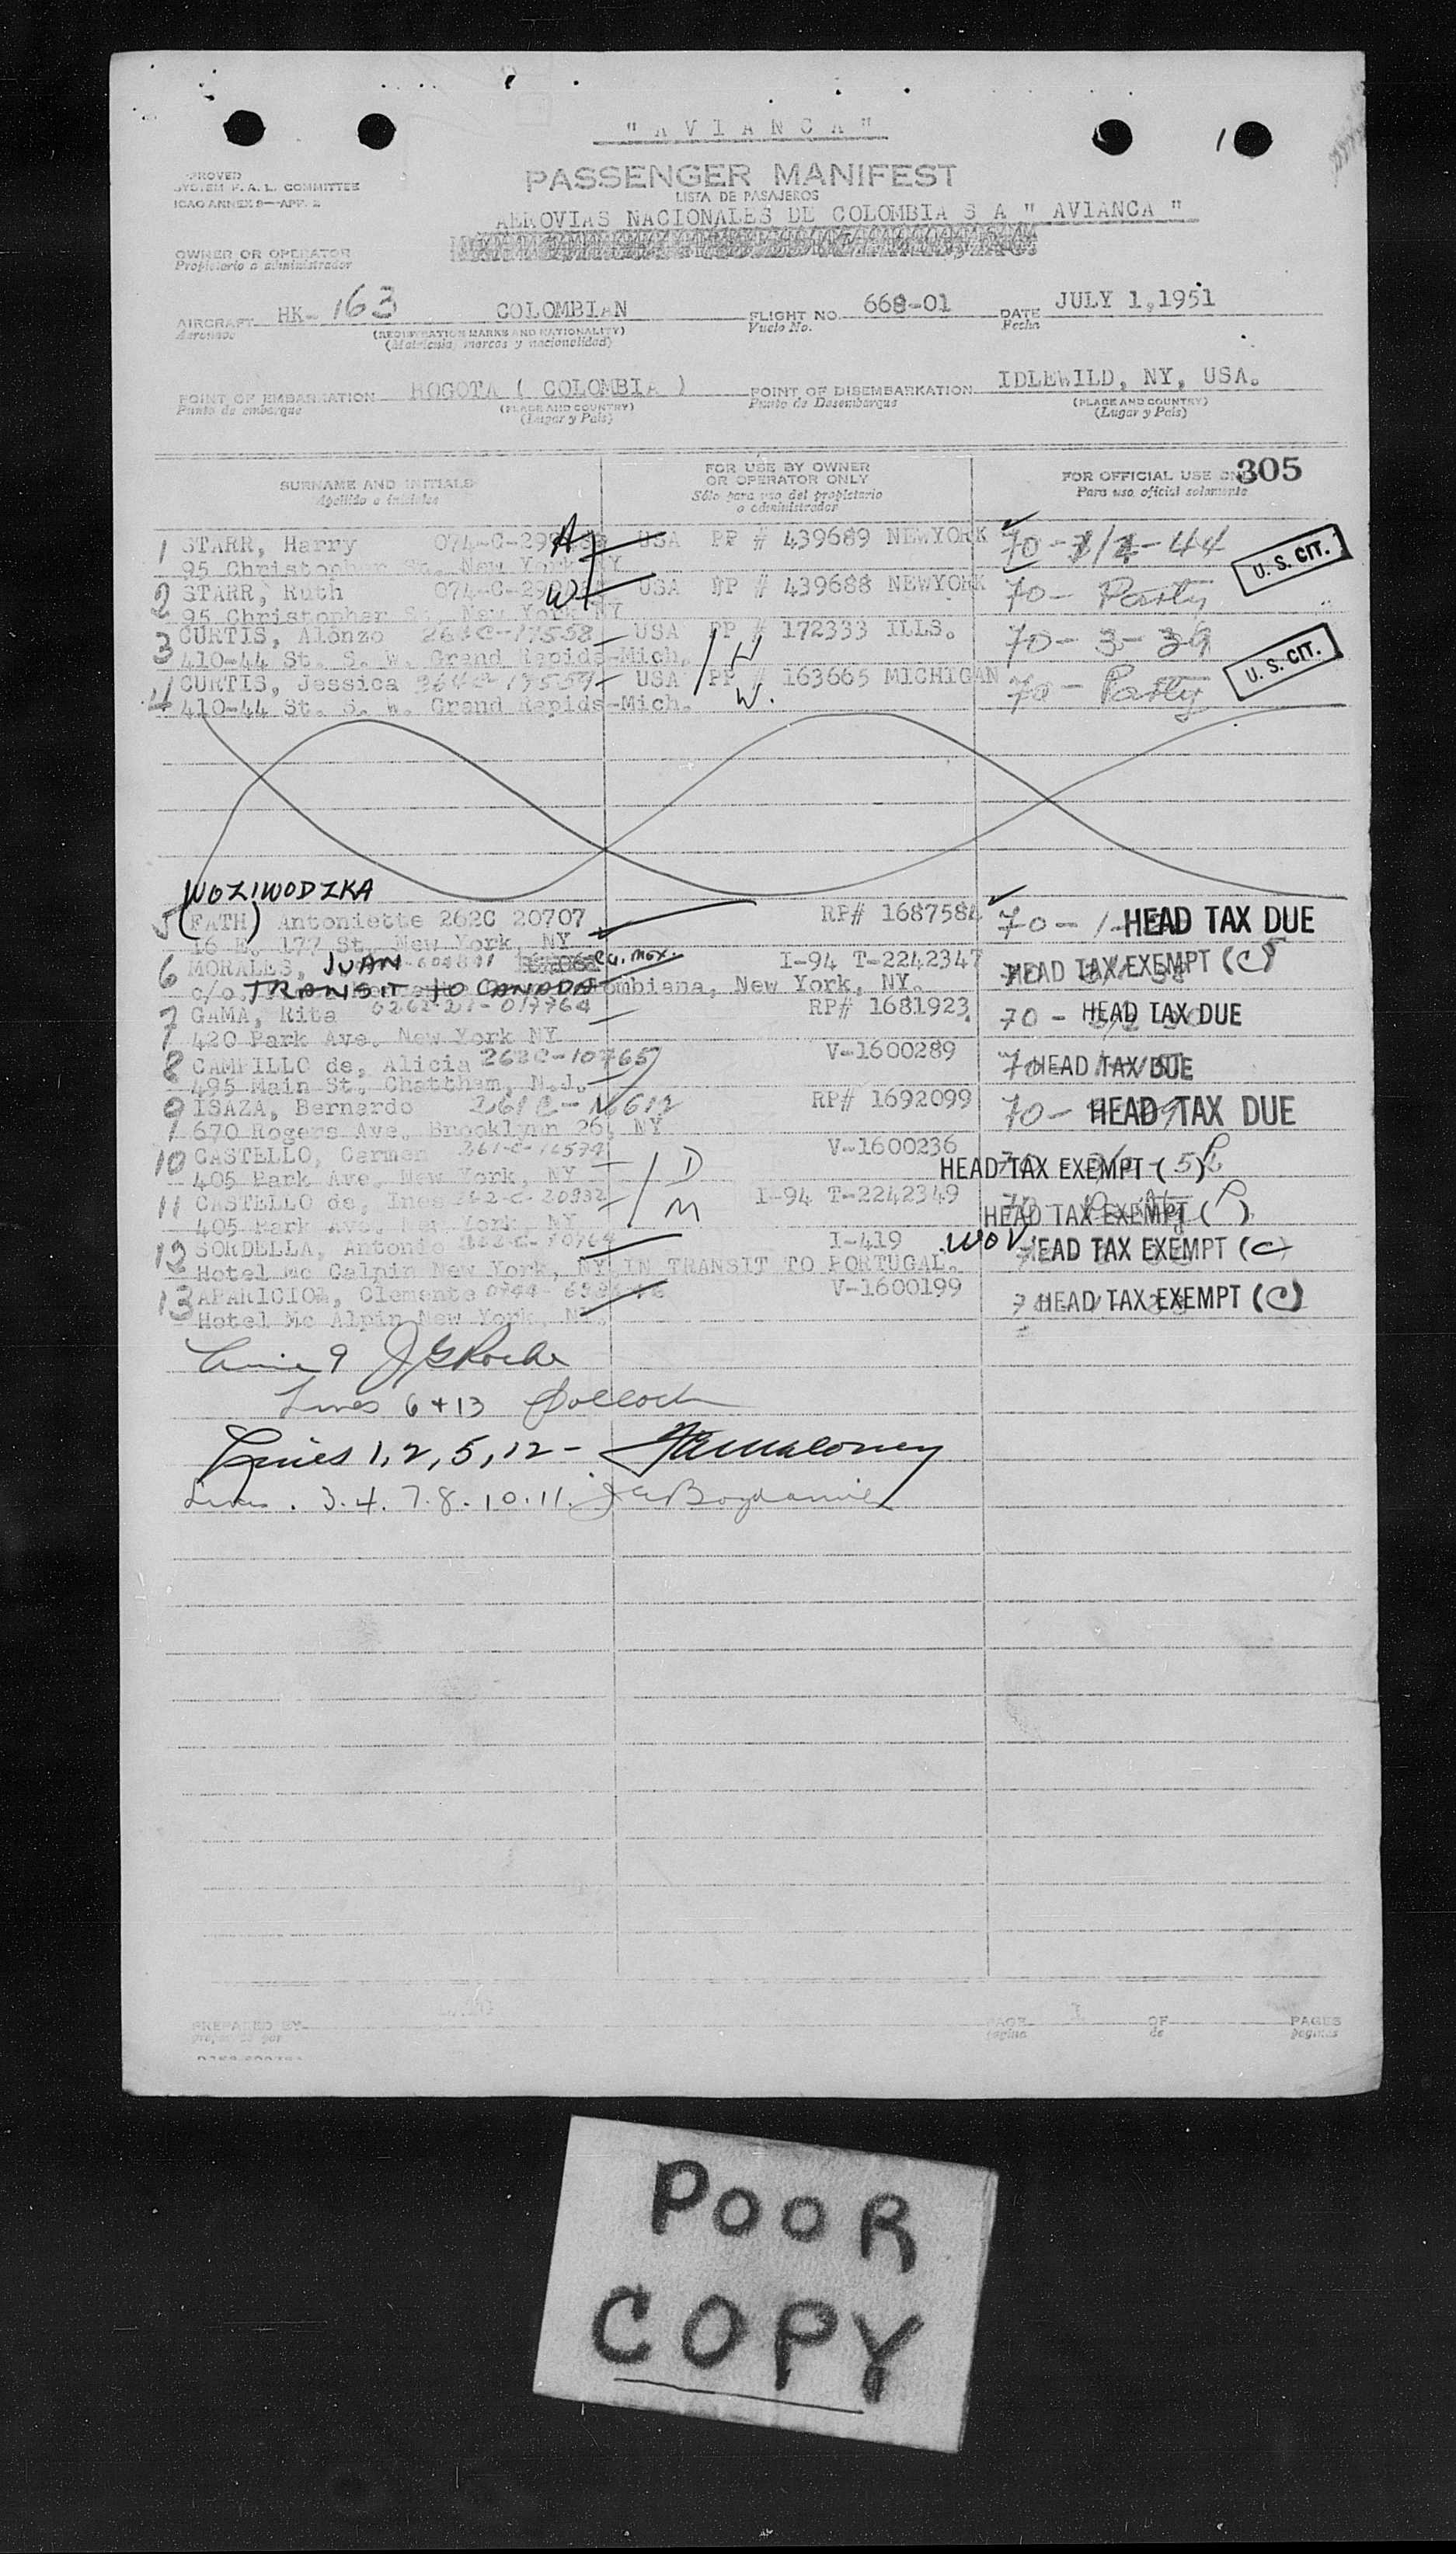 " A V I A N C A "
PASSENGER MANIFEST
LISTA DE PASAJEROS
AEROVIAS NACIONALES DE COLOMBIA S A " AVIANCA "
SYSTEM F. A. L. COMMITTEE
ICAO ANNEX 9—APP. 2
OWNER OR OPERATOR
Propietario o administrador
AIRCRAFT HK- 163 COLOMBIAN FLIGHT NO. 668-01 DATE JULY 1,1951
Aeronave (REGISTRATION MARKS AND NATIONALITY) Vuelo No. Fecha
(Matricula, marcos y nacionalidad)
POINT OF EMBARKATION BOGOTA ( COLOMBIA ) POINT OF DISEMBARKATION IDLEWILD, NY, USA.
Punto de embarque (PLACE AND COUNTRY) Punto de Desembarque (PLACE AND COUNTRY)
(Lugar y Pais) (Lugar y Pais)
SURNAME AND INITIALS FOR USE BY OWNER OR OPERATOR ONLY FOR OFFICIAL USE 305
Apellido e iniciales Sólo para uso del propietario o administrador Para uso oficial solamente
1 STARR, Harry 074-C- A USA PP # 439689 NEWYORK 70-
95 Christopher New York NY U. S. CIT.
2 STARR, Ruth 074-C- W USA PP # 439688 NEWYORK 70- Party
95 Christopher New York NY
3 CURTIS, Alonzo USA PP # 172333 ILLS. 70-3-39
410-44 St. S. W. Grand Rapids-Mich. H U. S. CIT.
4 CURTIS, Jessica USA PP # 163665 MICHIGAN 70- Party
410-44 St. S. W. Grand Rapids-Mich. W.
WOZIWODZKA
5 (FATH) Antoniette 262C 20707 RP# 1687584 70- HEAD TAX DUE
16 E. 177 St. New York, NY
6 MORALES, JUAN I-94 T-2242347 HEAD TAX EXEMPT (C)
c/o. TRANSIT TO CANADA ombiana, New York, NY.
7 GAMA, Rita RP# 1681923 70- HEAD TAX DUE
420 Park Ave. New York NY
8 CAMPILLO de, Alicia 262C-10765 V-1600289 HEAD TAX DUE
495 Main St. Chattham, N.J.
9 ISAZA, Bernardo RP# 1692099 70- HEAD TAX DUE
1670 Rogers Ave. Brooklynn 26, NY
10 CASTELLO, Carmen D V-1600236 HEAD TAX EXEMPT (
405 Park Ave. New York, NY
11 CASTELLO de, Ines M I-94 T-2242349 HEAD TAX EXEMPT (P)
405 Park Ave. New York, NY
12 SORDELLA, Antonio I-419 WOV HEAD TAX EXEMPT (C)
Hotel Mc Calpin New York, NY IN TRANSIT TO PORTUGAL.
13 APARICIO, Clemente V-1600199 HEAD TAX EXEMPT (C)
Hotel Mc Alpin New York, NY.
Line 9 J G Roche
Lines 6+13 Pollock
Lines 1,2,5,12- Maloney
Lines. 3.4.7.8.10.11.
PREPARED BY PAGE 1 OF PAGES
preparado por página de páginas
POOR
COPY